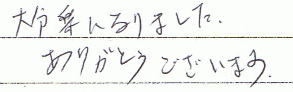 大分楽になりました.
ありがとうございます.